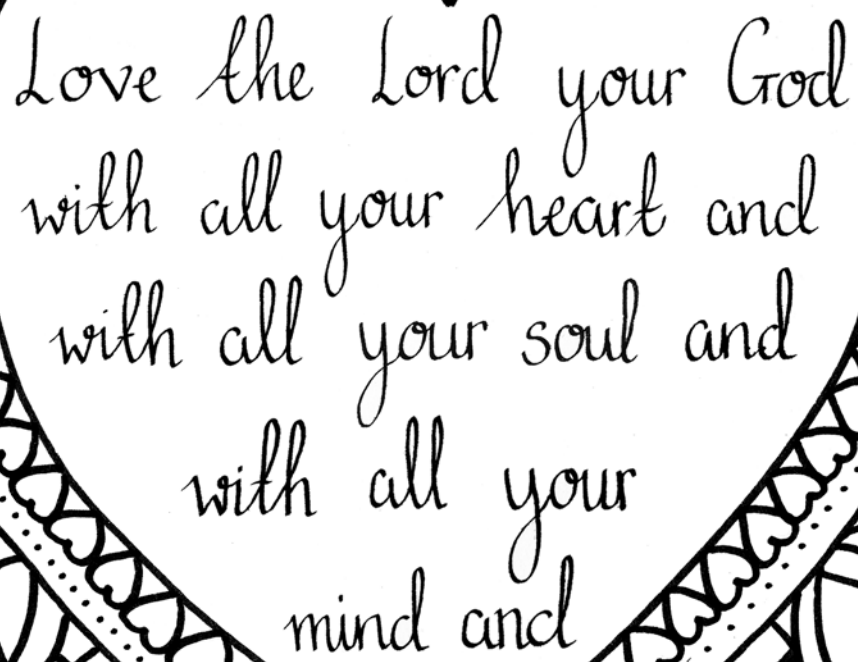 Love the Lord your God
with all your heart and
with all your soul and
with all your
mind and